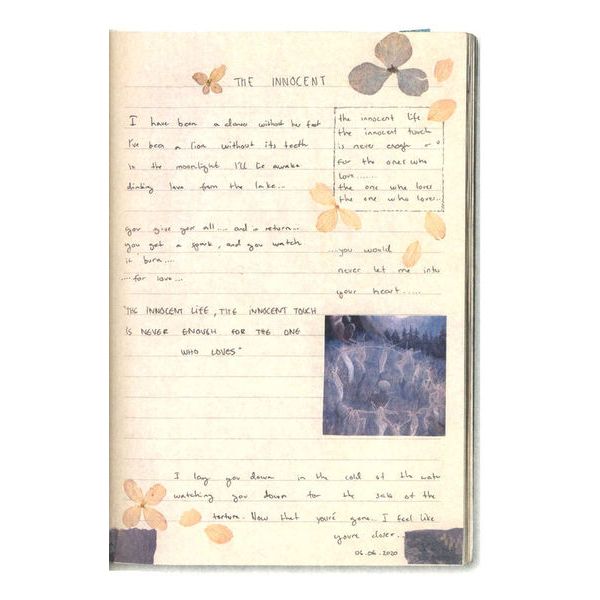 THE INNOCENT
I have been a dancer without her feet
I've been a lion without its teeth
in the moonlight I'll lie awake
drinking love from the lake...
the innocent life
the innocent touch
is never enough
for the ones who
love......
the one who loves
the one who loves..
you give your all.... and in return..
you get a spark, and you watch
it burn....
....for love...
...you would
never let me into
your heart.....
"THE INNOCENT LIFE, THE INNOCENT TOUCH
IS NEVER ENOUGH FOR THE ONE
WHO LOVES"
I lay you down in the cold of the water
watching you drown for the sake of the
torture. Now that you're gone.. I feel like
you're closer...
06.06.2020